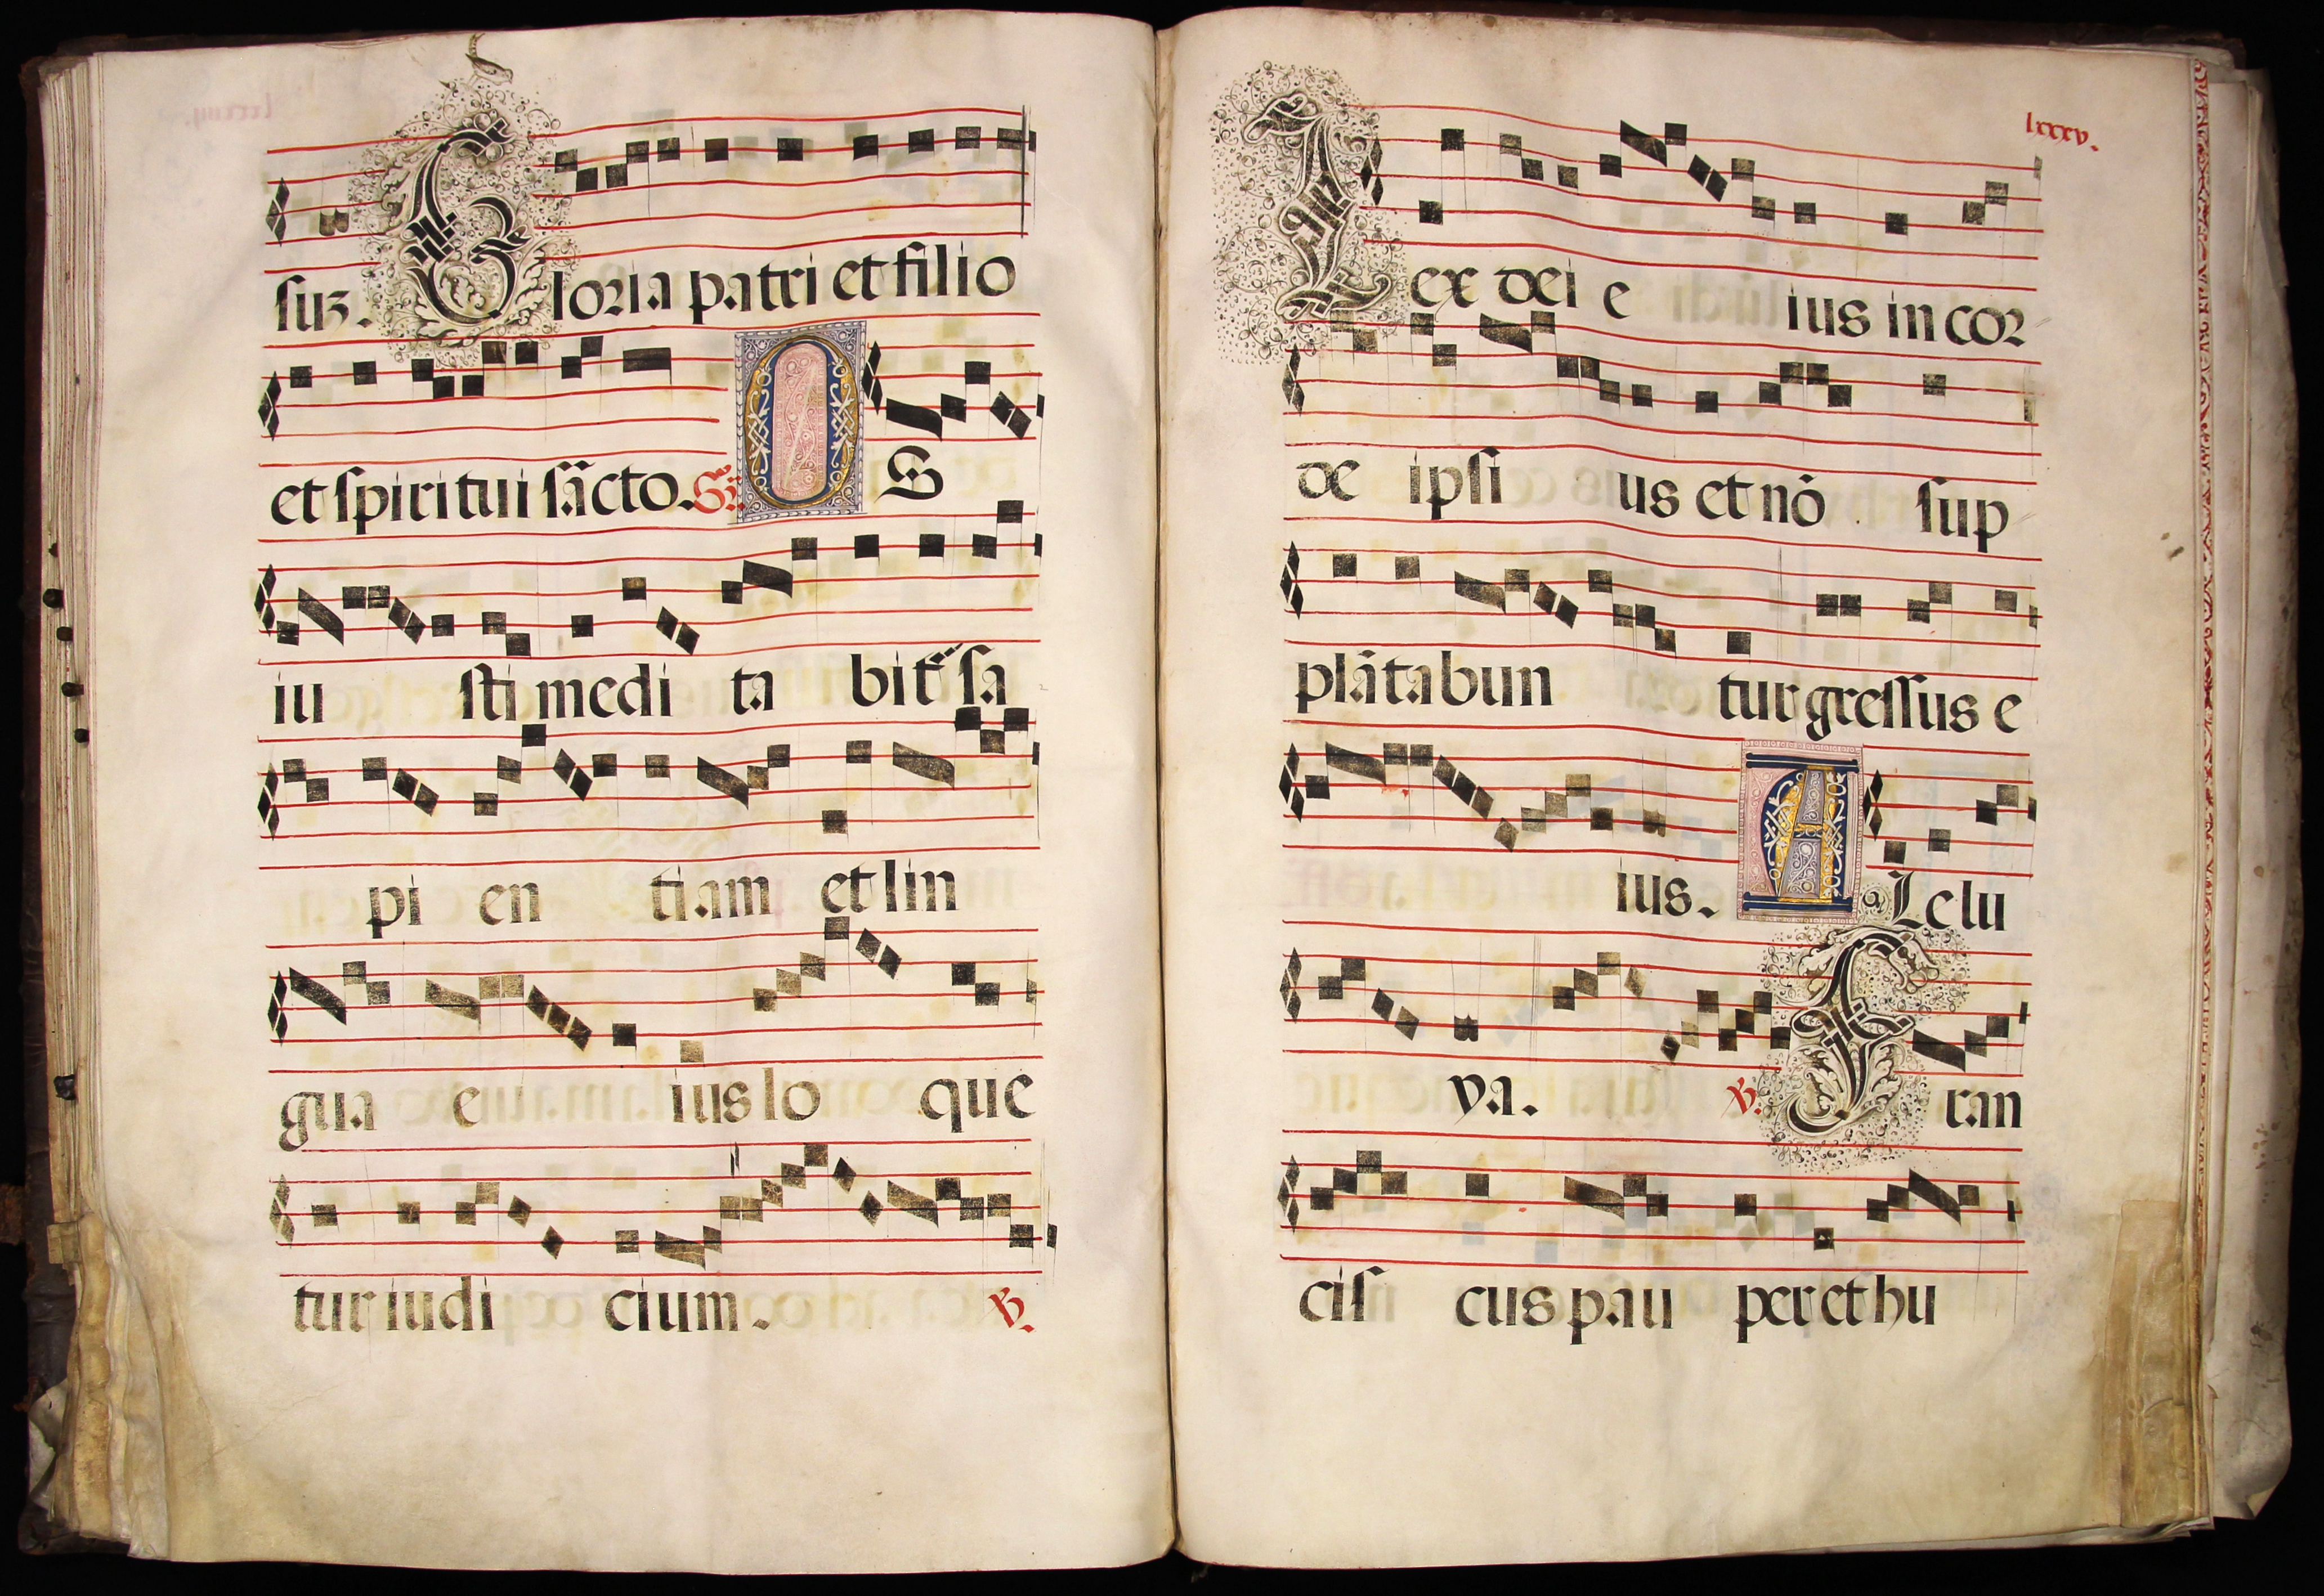 suz. Gloria patri et filio
et spiritui sãcto. Gr. OS
iu sti medi ta bit̃ sa
pi en tiam et lin
gua e ius lo que
tur iudi cium. ℣.
lxxxv.
Lex dei e ius in cor
de ipsi us et nõ sup
plãtabun tur gressus e
ius. Alle lu
ya. ℣. Fran
cis cus pau per et hu